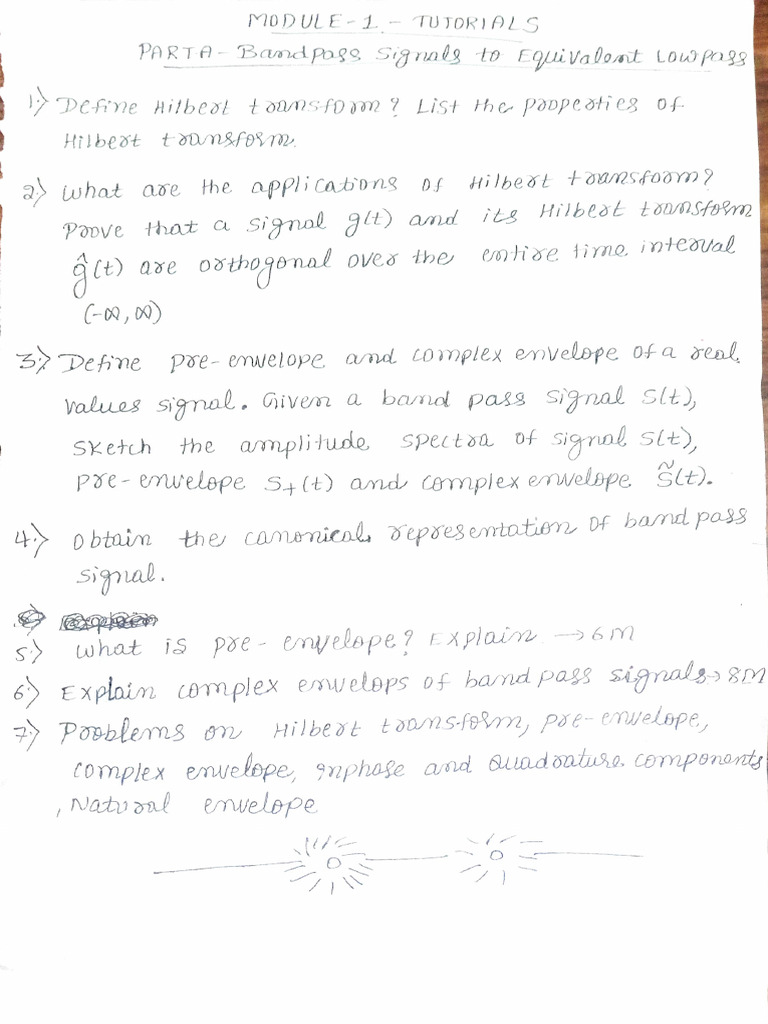 MODULE-1 - TUTORIALS
PARTA - Bandpass Signals to Equivalent Lowpass
1) Define Hilbert transform? List the properties of
Hilbert transform.
2) What are the applications of Hilbert transform?
Prove that a signal g(t) and its Hilbert transform
ĝ(t) are orthogonal over the entire time interval
(-∞, ∞)
3) Define pre-envelope and complex envelope of a real
values signal. Given a band pass signal S(t),
sketch the amplitude spectra of signal S(t),
pre-envelope S+(t) and complex envelope S̃(t).
4) Obtain the canonical representation of band pass
signal.
5) What is pre-envelope? Explain → 6M
6) Explain complex envelops of band pass signals → 8M
7) Problems on Hilbert transform, pre-envelope,
complex envelope, Inphase and Quadrature components
, Natural envelope